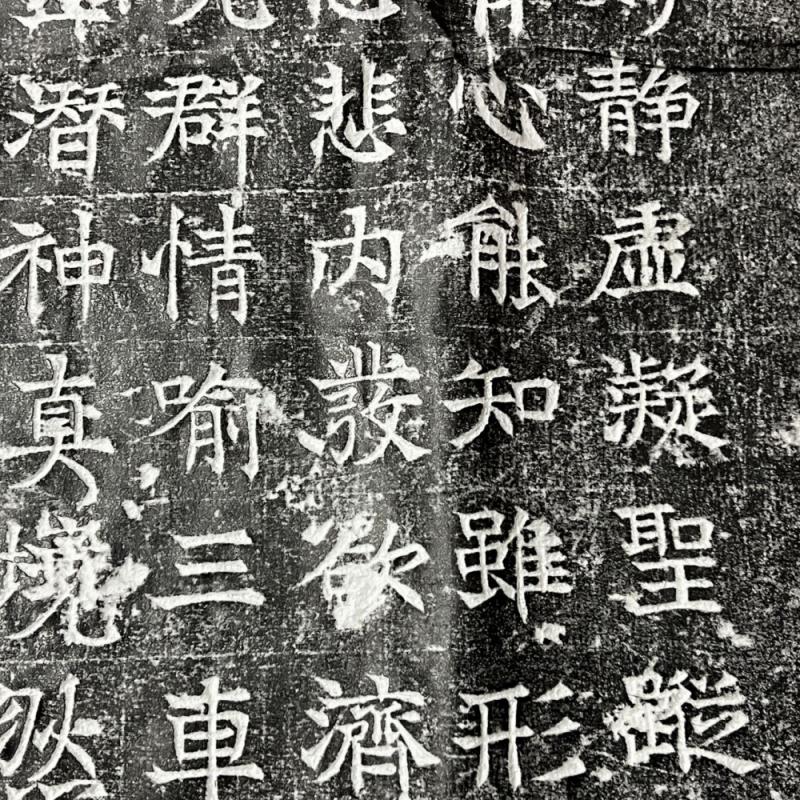 静虚凝聖蹤
心能知雖形
悲内發欲濟
群情喻三車
潛神真境